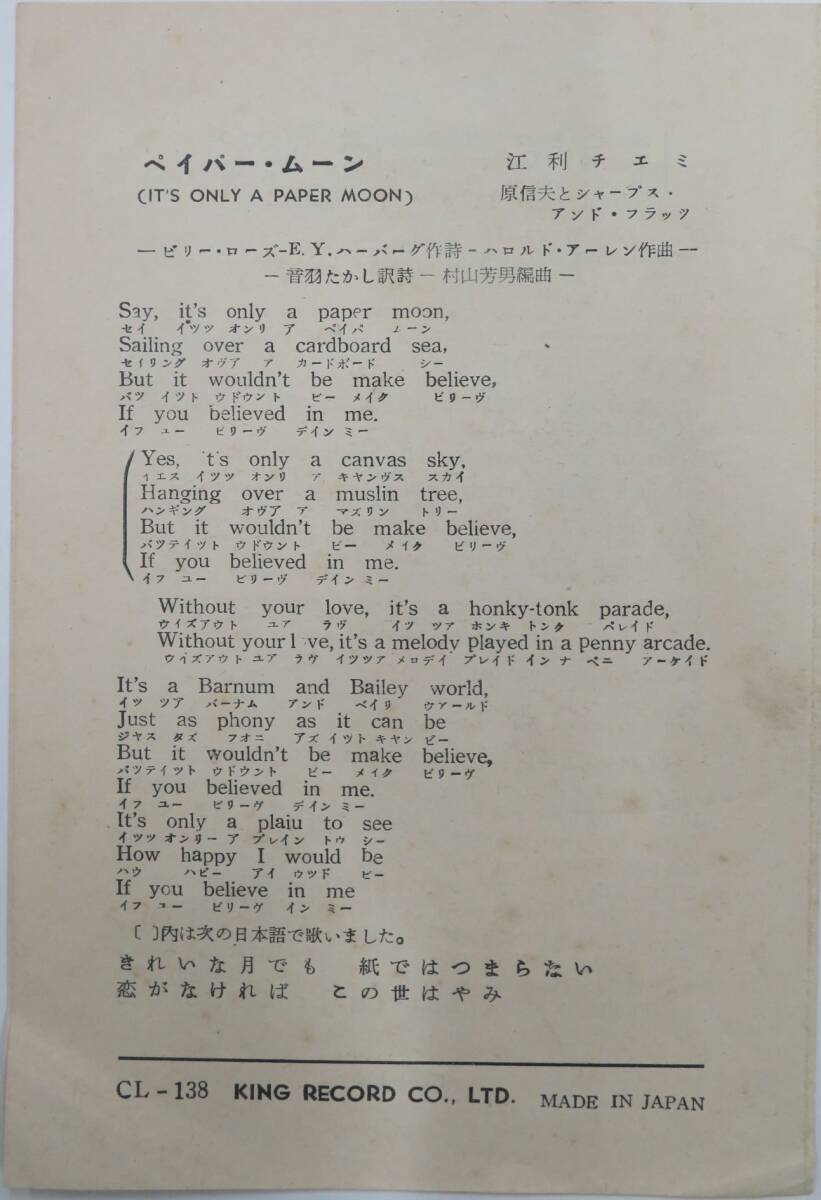 ペイパー・ムーン
(IT'S ONLY A PAPER MOON)
江利チエミ
原信夫とシャープス・
アンド・フラッツ
ービリー・ローズ-E.Y.ハーバーグ作詩-ハロルド・アーレン作曲ー
ー音羽たかし訳詩ー村山芳男編曲ー
Say, it's only a paper moon,
セイ イツツ オンリ ア ペイパ ムーン
Sailing over a cardboard sea,
セイリング オヴア ア カードボード シー
But it wouldn't be make believe,
バツ イツト ウドウント ビー メイク ビリーヴ
If you believed in me.
イフ ユー ビリーヴ デイン ミー
Yes, 't's only a canvas sky,
イエス イツツ オンリ ア キヤンヴス スカイ
Hanging over a muslin tree,
ハンギング オヴア ア マズリン トリー
But it wouldn't be make believe,
バツテイツト ウドウント ビー メイク ビリーヴ
If you believed in me.
イフ ユー ビリーヴ デイン ミー
Without your love, it's a honky-tonk parade,
ウイズアウト ユア ラヴ イツ ツア ホンキ トンク パレイド
Without your l ve, it's a melody played in a penny arcade.
ウイズアウト ユア ラヴ イツツア メロデイ プレイド イン ナ ペニ アーケイド
It's a Barnum and Bailey world,
イツ ツア バーナム アンド ベイリ ウアールド
Just as phony as it can be
ジヤス タズ フオニ アズ イツト キヤン ビー
But it wouldn't be make believe,
バツテイツト ウドウント ビー メイク ビリーヴ
If you believed in me.
イフ ユー ビリーヴ デイン ミー
It's only a plaiu to see
イツツ オンリー ア プレイン トウ シー
How happy I would be
ハウ ハピー アイ ウツド ビー
If you believe in me
イフ ユー ビリーヴ イン ミー
〔 〕内は次の日本語で歌いました。
きれいな月でも 紙ではつまらない
恋がなければ この世はやみ
CL-138 KING RECORD CO., LTD. MADE IN JAPAN